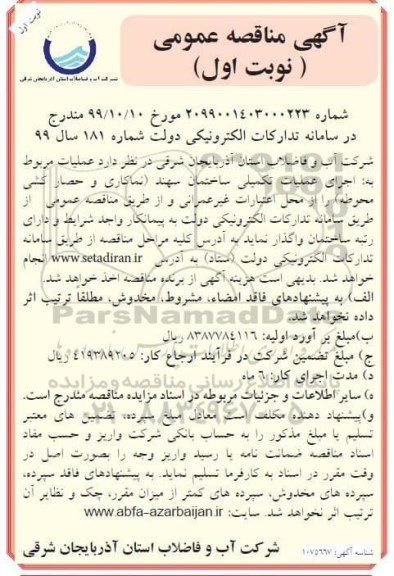 نوبت اول
آگهی مناقصه عمومی
( نوبت اول)
شرکت آب و فاضلاب استان آذربایجان شرقی
شماره ۲۰۹۹۰۰۱۴۰۳۰۰۰۲۲۳ مورخ ۹۹/۱۰/۱۰ مندرج
در سامانه تدارکات الکترونیکی دولت شماره ۱۸۱ سال ۹۹
شرکت آب و فاضلاب استان آذربایجان شرقی در نظر دارد عملیات مربوط
به: اجرای عملیات تکمیلی ساختمان سهند (نماکاری و حصار کشی
محوطه) را از محل اعتبارات غیرعمرانی و از طریق مناقصه عمومی از
طریق سامانه تدارکات الکترونیکی دولت به پیمانکار واجد شرایط و دارای
رتبه ساختمان واگذار نماید به آدرس کلیه مراحل مناقصه از طریق سامانه
تدارکات الکترونیکی دولت (ستاد) به آدرس www.setadiran.ir انجام
خواهد شد. بدیهی است هزینه آگهی از برنده مناقصه اخذ خواهد شد.
الف) به پیشنهادهای فاقد امضاء، مشروط، مخدوش، مطلقاً ترتیب اثر
داده نخواهد شد.
ب)مبلغ بر آورد اولیه: ۸۳۸۷۷۸۴۱۱۶ ریال
ج) مبلغ تضمین شرکت در فرآیند ارجاع کار: ۴۱۹۳۸۹۲۰۵ ریال
د) مدت اجرای کار: ۶ ماه
ه) سایر اطلاعات و جزئیات مربوطه در اسناد مزایده مناقصه مندرج است.
و)پیشنهاد دهنده مکلف است معادل مبلغ سپرده، تضمین های معتبر
تسلیم یا مبلغ مذکور را به حساب بانکی شرکت واریز و حسب مفاد
اسناد مناقصه ضمانت نامه یا رسید واریز وجه را بصورت اصل در
وقت مقرر در اسناد به کارفرما تسلیم نماید. به پیشنهادهای فاقد سپرده،
سپرده های مخدوش، سپرده های کمتر از میزان مقرر، چک و نظایر آن
ترتیب اثر نخواهد شد. سایت: www.abfa-azarbaijan.ir
شرکت آب و فاضلاب استان آذربایجان شرقی
شناسه آگهی: ۱۰۷۵۶۶۷
ParsNamadData
پایگاه اطلاع رسانی مناقصه و مزایده
۰۲۱-۸۸۳۴۹۶۷۰-۵